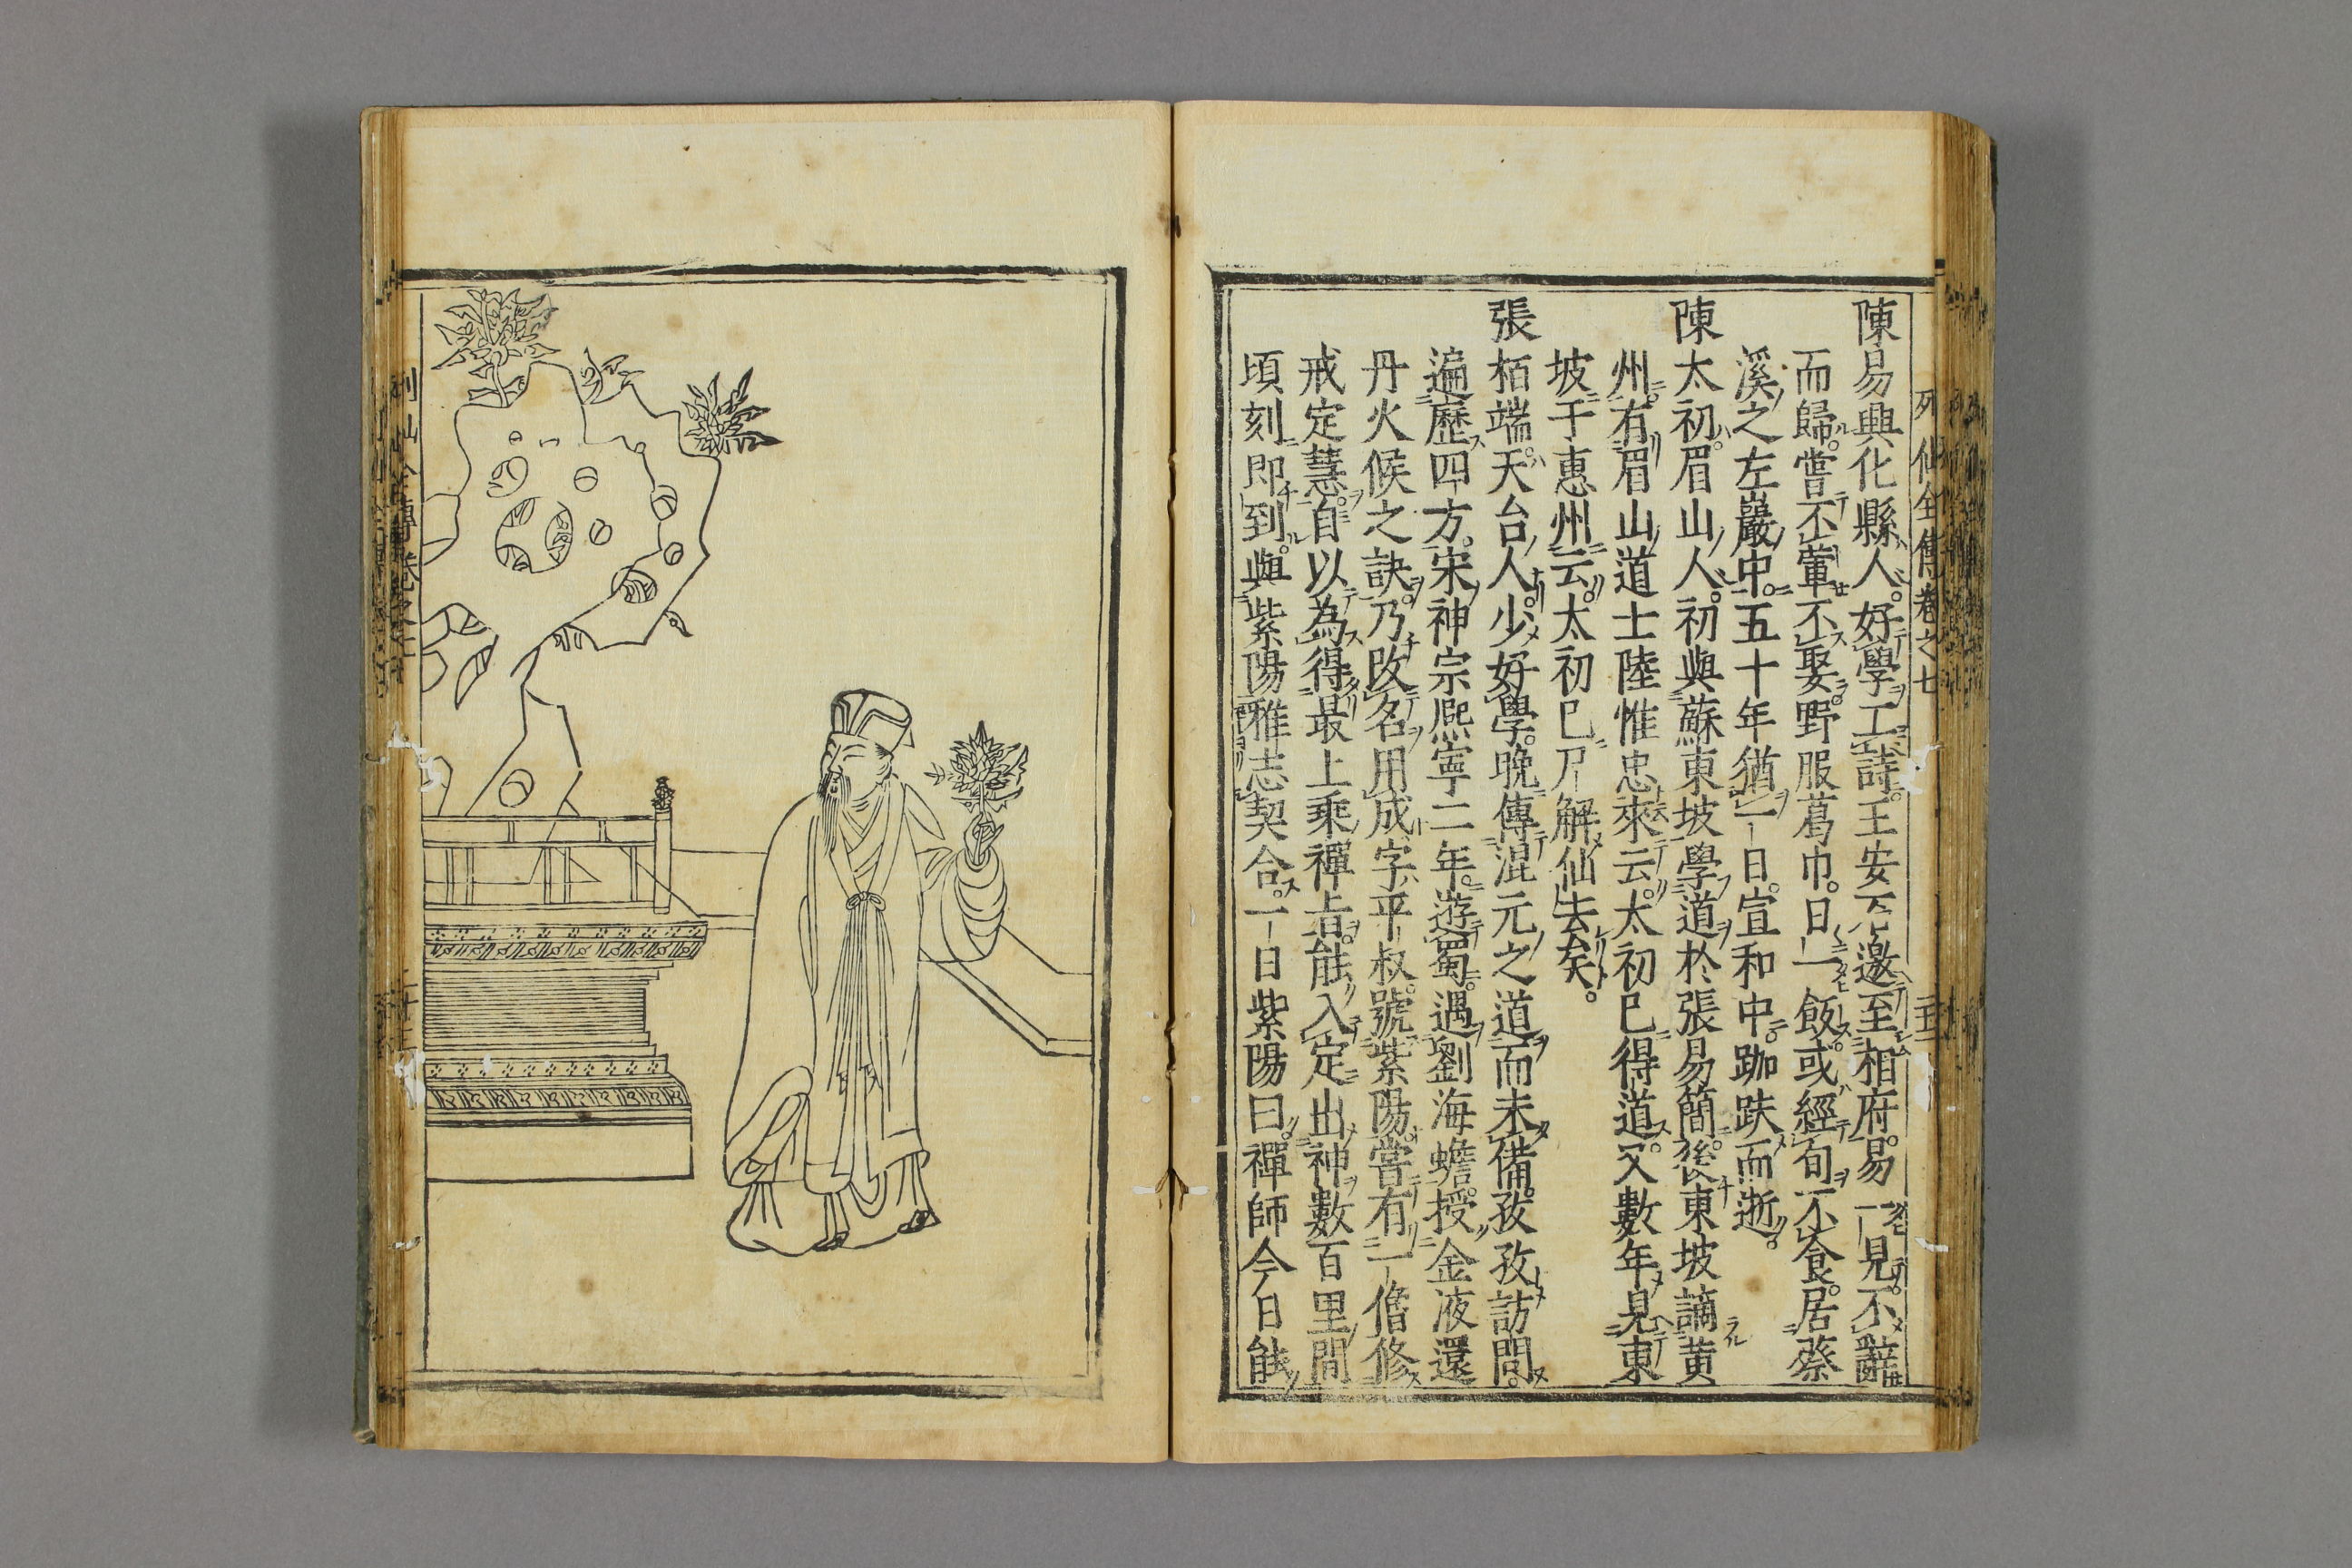 列仙全傳卷之七
陳易興化縣人。好學工詩。王安石邀至相府。易一見。不辭
而歸。嘗不葷不娶。野服葛巾。日一飯。或經旬不食。居蔡
溪之左巖中。五十年猶一日。宣和中。跏趺而逝。
陳太初。眉山人。初與蘇東坡學道於張易簡。後東坡謫黄
州。有眉山道士陸惟忠來云。太初已得道。又數年見東
坡于惠州云。太初已尸解仙去矣。
張栢端。天台人。少好學。晚傳混元之道而未備。孜孜訪問。
遍歷四方。宋神宗熈寧二年。遊蜀。遇劉海蟾。授金液還
丹火候之訣。乃改名用成。字平叔。號紫陽。嘗有一僧修
戒定慧。自以為得最上乘禪旨。能入定出神。數百里間
頃刻即到。與紫陽雅志契合。一日紫陽曰。禪師今日能
列仙全傳卷之七